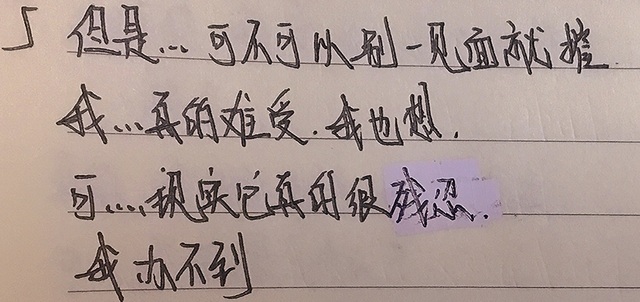 但是...可不可以别一见面就撵
我...真的难受.我也想.
可...现实它真的很残忍.
我办不到